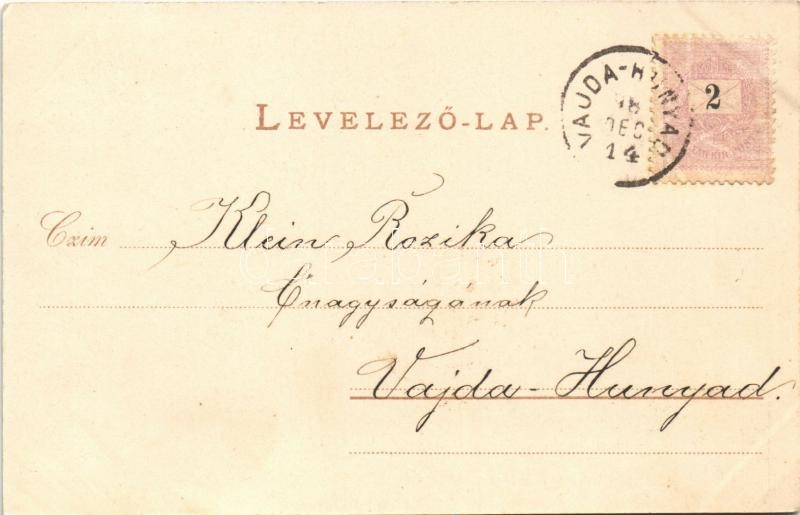 LEVELEZŐ-LAP.
VAJDA-HUNYAD
98
DEC
14
2
Czim Klein Rozika
Őnagyságának
Vajda-Hunyad.